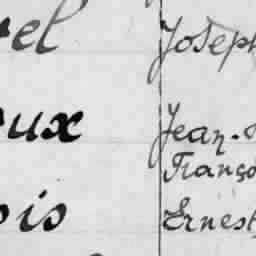 rel Joseph
eux Jean-
Franço
ois Ernest